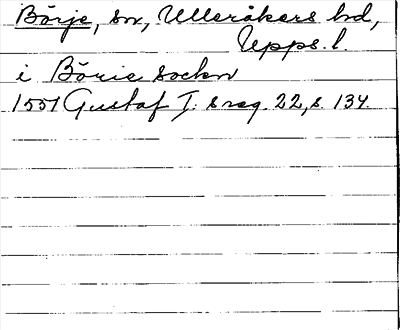 Börje, sn, Ulleråkers hd,
Upps. l.
i Börie sockn
1551 Gustaf I. s reg. 22, s. 134.